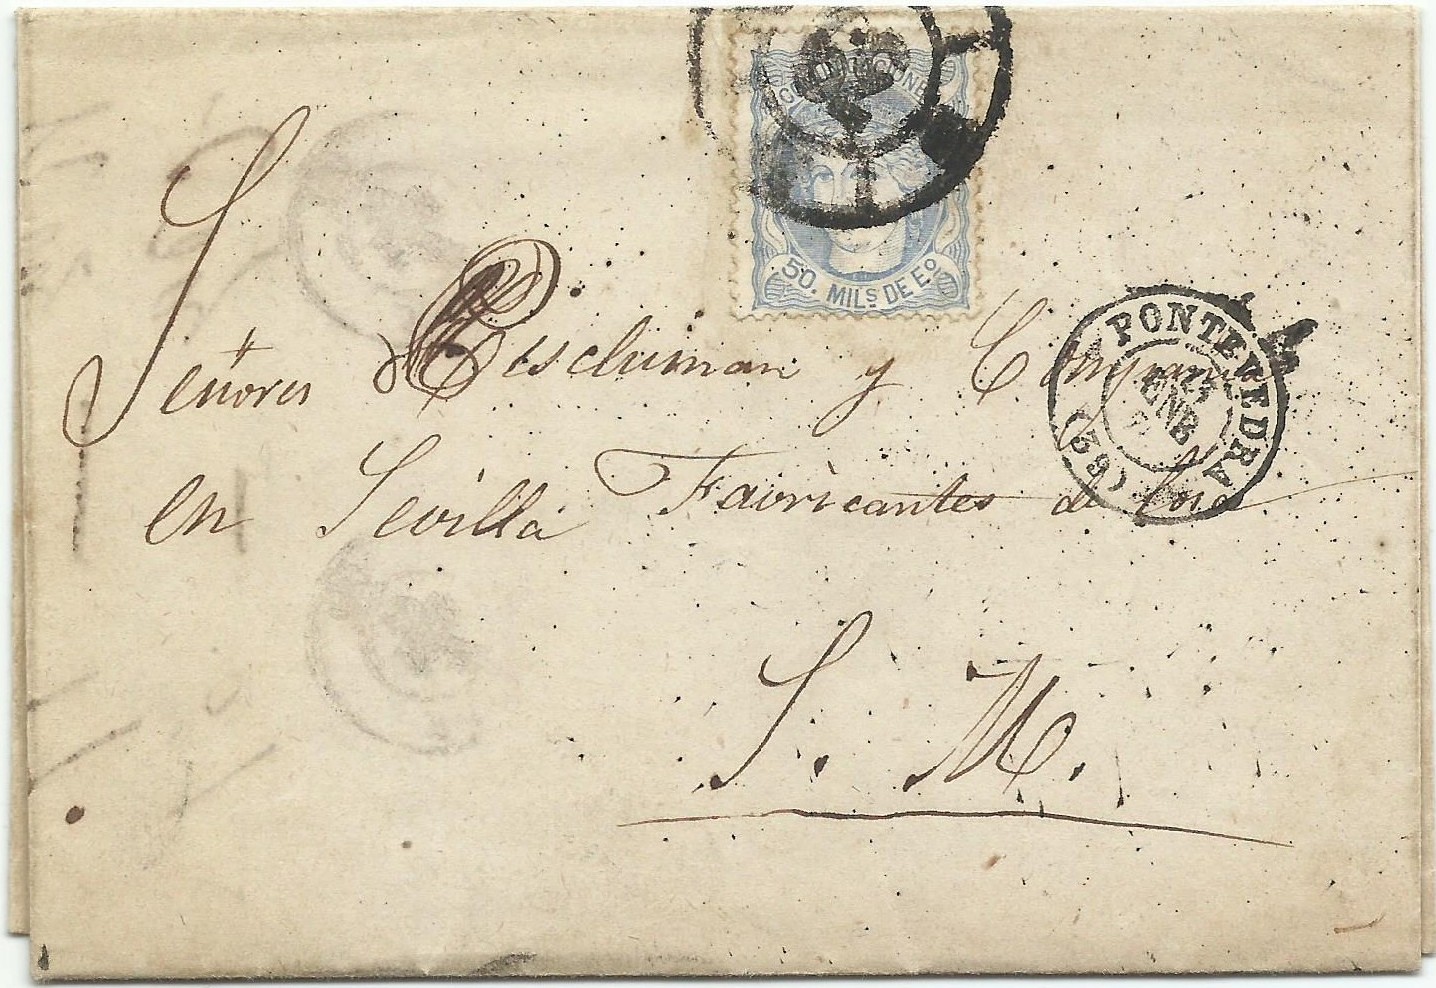 COMUNICACIONES
50. MILS DE Eo
PONTEVEDRA
23
ENE
(39)
Señores y Compañ
en Sevilla Favricantes de
S. M.